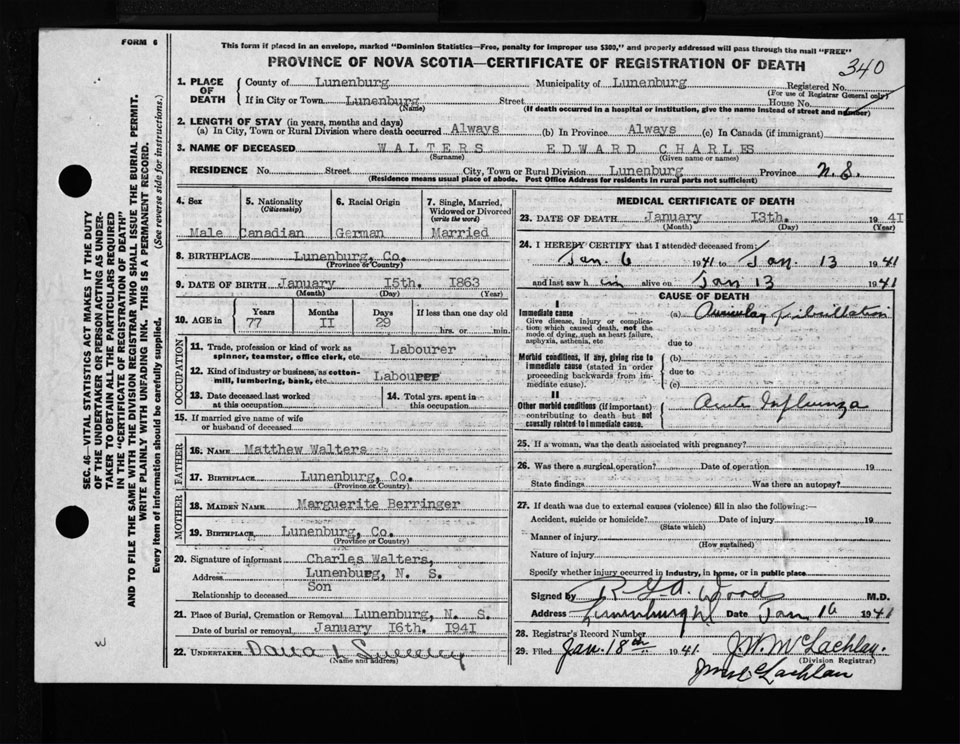 FORM 6
This form if placed in an envelope, marked "Dominion Statistics—Free, penalty for improper use $300," and properly addressed will pass through the mail "FREE"
PROVINCE OF NOVA SCOTIA—CERTIFICATE OF REGISTRATION OF DEATH
340
1. PLACE OF DEATH
County of Lunenburg Municipality of Lunenburg Registered No.
(For use of Registrar General only)
If in City or Town Lunenburg Street House No.
(Name) (If death occurred in a hospital or institution, give the name instead of street and number)
2. LENGTH OF STAY (in years, months and days)
(a) In City, Town or Rural Division where death occurred Always (b) In Province Always (c) In Canada (if immigrant)
3. NAME OF DECEASED WALTERS EDWARD CHARLES
(Surname) (Given name or names)
RESIDENCE No. Street City, Town or Rural Division Lunenburg Province N.S.
(Residence means usual place of abode. Post Office Address for residents in rural parts not sufficient)
4. Sex Male
5. Nationality (Citizenship) Canadian
6. Racial Origin German
7. Single, Married, Widowed or Divorced (write the word) Married
8. BIRTHPLACE Lunenburg, Co.
(Province or Country)
9. DATE OF BIRTH January 15th. 1863
(Month) (Day) (Year)
10. AGE in Years 77 Months II Days 29 If less than one day old hrs. or min.
OCCUPATION
11. Trade, profession or kind of work as spinner, teamster, office clerk, etc. Labourer
12. Kind of industry or business, as cotton-mill, lumbering, bank, etc. Labourer
13. Date deceased last worked at this occupation
14. Total yrs. spent in this occupation
15. If married give name of wife or husband of deceased
FATHER
16. NAME Matthew Walters
17. BIRTHPLACE Lunenburg, Co.
(Province or Country)
MOTHER
18. MAIDEN NAME Marguerite Berringer
19. BIRTHPLACE Lunenburg, Co.
(Province or Country)
20. Signature of informant Charles Walters,
Address Lunenburg, N. S.
Relationship to deceased Son
21. Place of Burial, Cremation or Removal Lunenburg, N. S.
Date of burial or removal January 16th. 1941
22. UNDERTAKER
(Name and address)
MEDICAL CERTIFICATE OF DEATH
23. DATE OF DEATH January 13th. 1941
(Month) (Day) (Year)
24. I HEREBY CERTIFY that I attended deceased from:
Jan. 6 1941 to Jan. 13 1941
and last saw him alive on Jan 13 1941
CAUSE OF DEATH
I
Immediate cause
Give disease, injury or complication which caused death, not the mode of dying, such as heart failure, asphyxia, asthenia, etc.
(a) Auricular Fibrillation
due to
Morbid conditions, if any, giving rise to immediate cause (stated in order proceeding backwards from immediate cause).
(b)
due to
(c)
II
Other morbid conditions (if important) contributing to death but not causally related to immediate cause.
Acute Influenza
25. If a woman, was the death associated with pregnancy?
26. Was there a surgical operation? Date of operation 19
State findings Was there an autopsy?
27. If death was due to external causes (violence) fill in also the following:—
Accident, suicide or homicide? Date of injury 19
(State which)
Manner of injury
(How sustained)
Nature of injury
Specify whether injury occurred in industry, in home, or in public place
Signed by R. G. A. Wood M.D.
Address Lunenburg NS Date Jan 16 1941
28. Registrar's Record Number
29. Filed Jan. 18th 1941. J.W. McLachlan.
(Division Registrar)
SEC. 46—VITAL STATISTICS ACT MAKES IT THE DUTY OF THE UNDERTAKER OR PERSON ACTING AS UNDERTAKER TO OBTAIN ALL THE PARTICULARS REQUIRED IN THE "CERTIFICATE OF REGISTRATION OF DEATH" AND TO FILE THE SAME WITH THE DIVISION REGISTRAR WHO SHALL ISSUE THE BURIAL PERMIT.
WRITE PLAINLY WITH UNFADING INK. THIS IS A PERMANENT RECORD.
Every item of information should be carefully supplied. (See reverse side for instructions.)
W